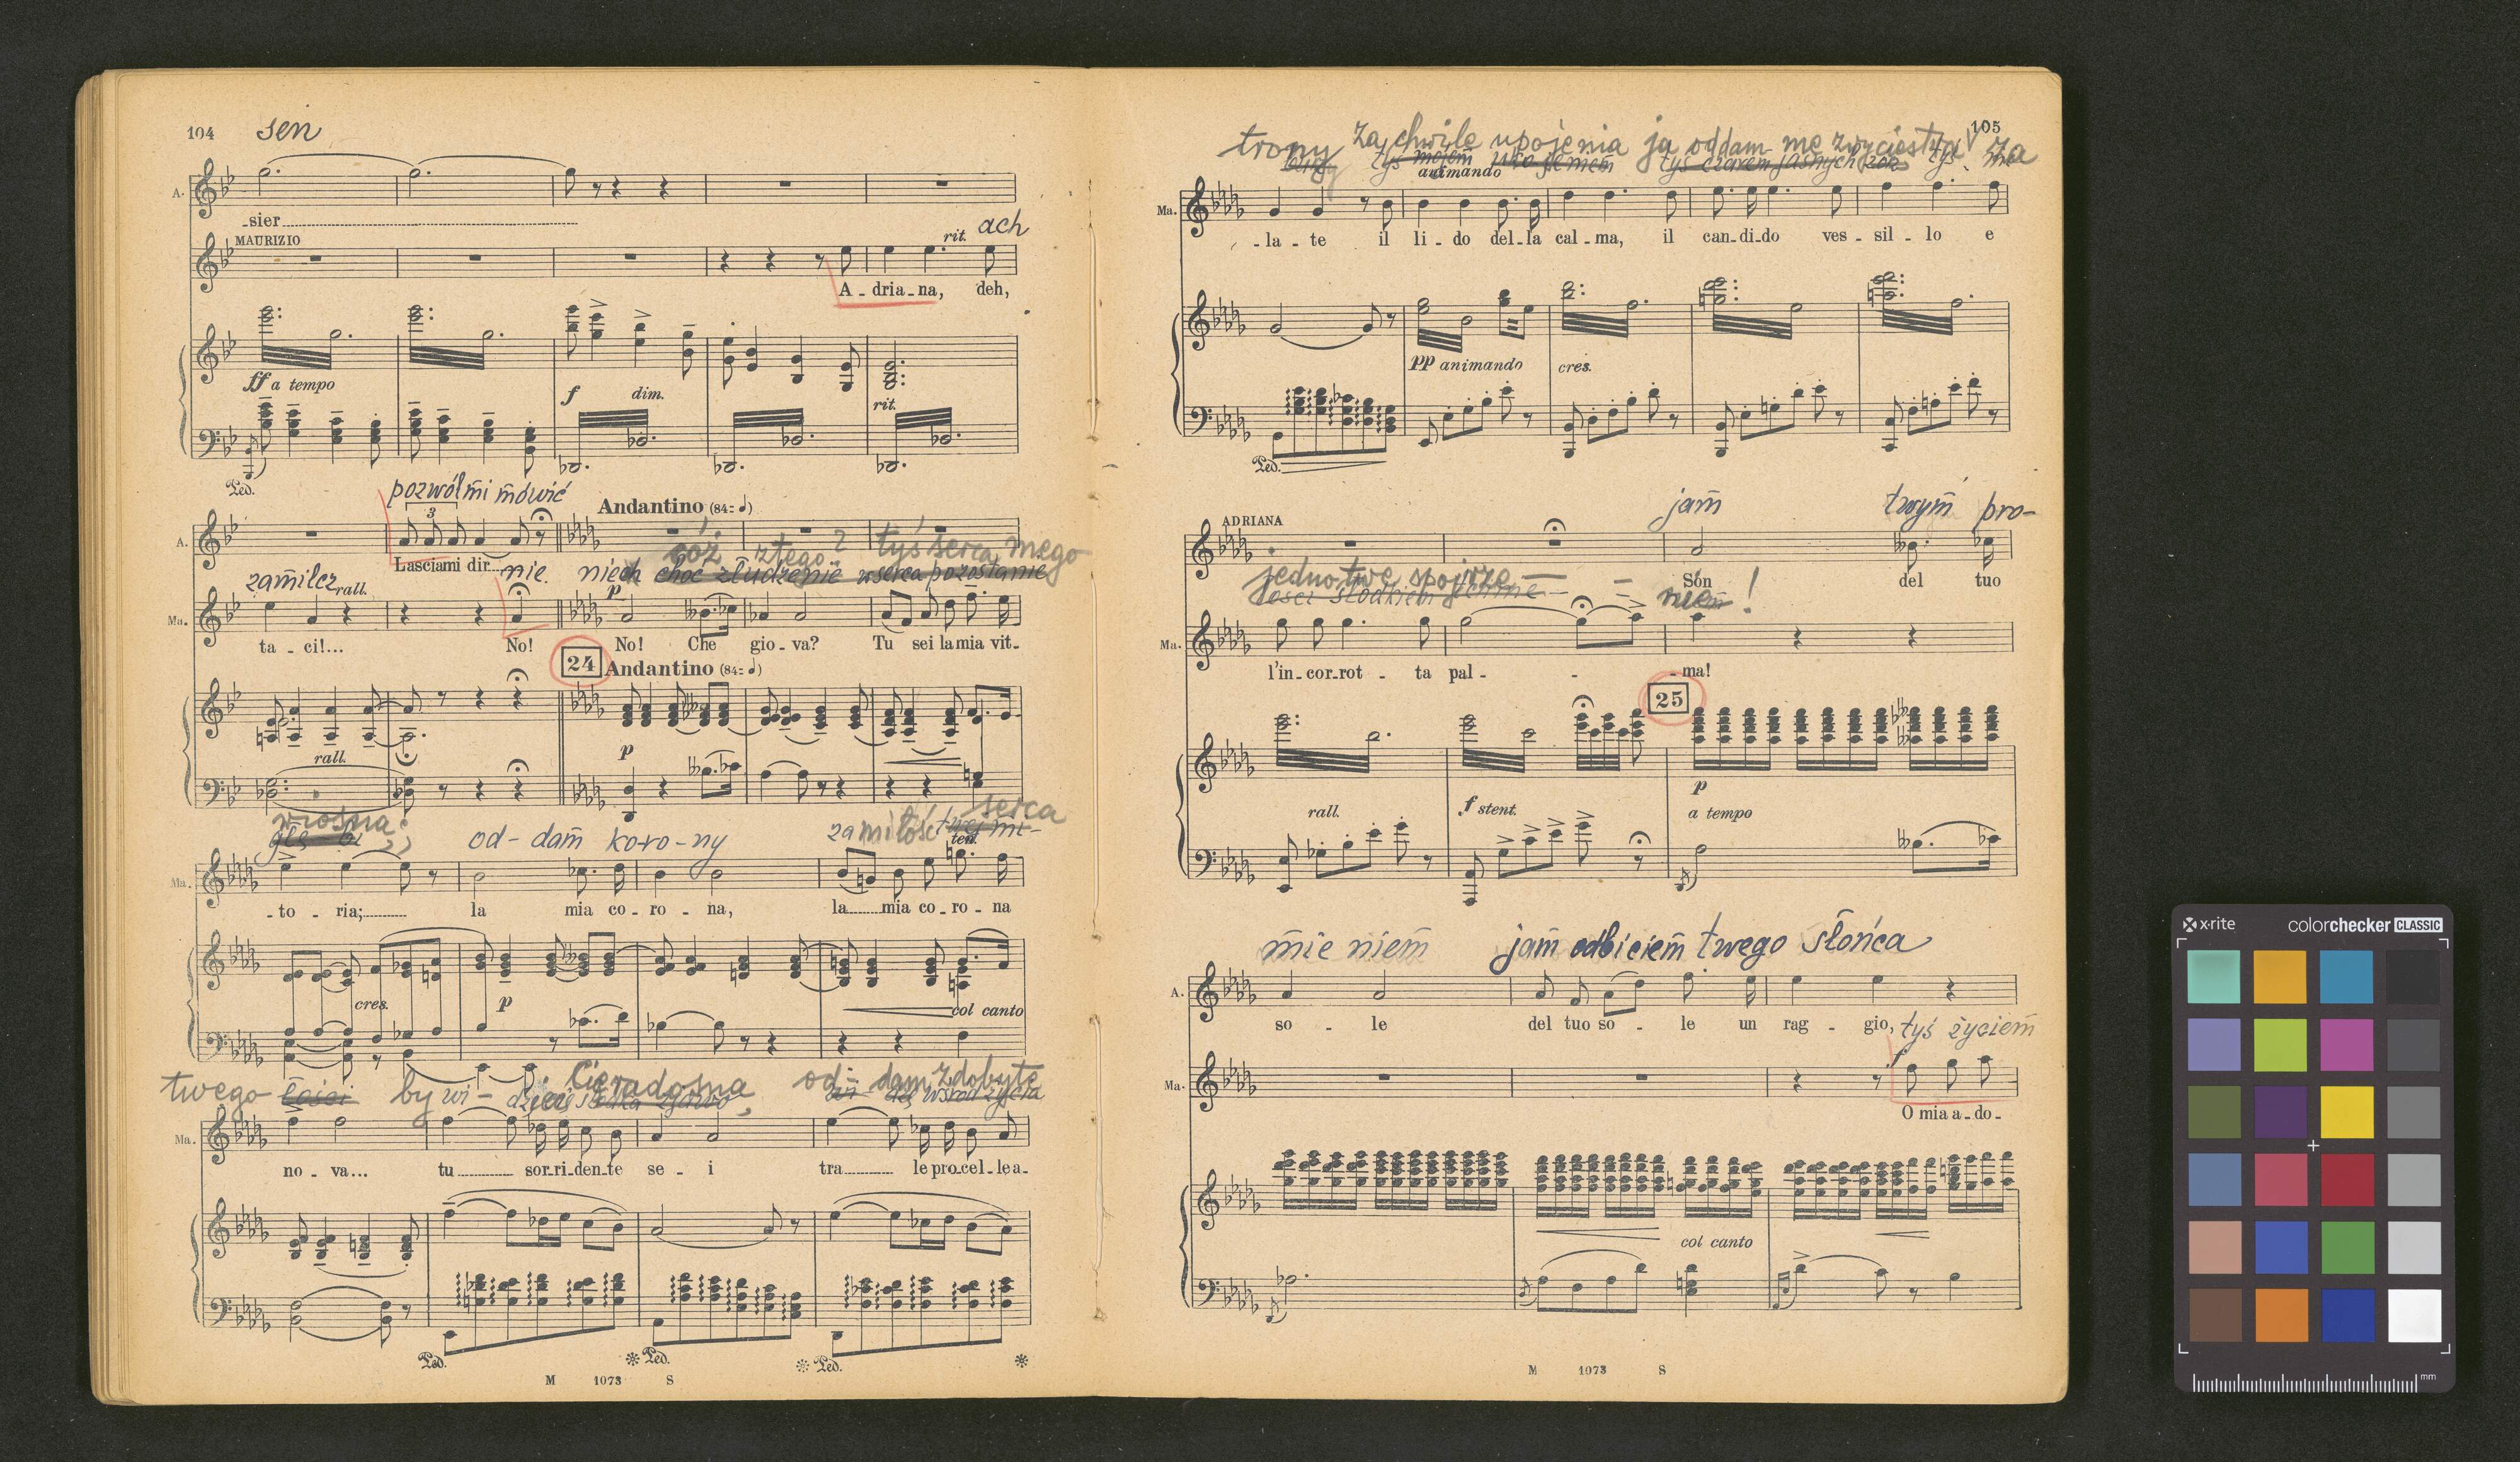 104 sen
A.
-sier
MAURIZIO
rit. ach
A - dria - na, deh,
ff a tempo f dim. rit.
Ped.
pozwól mi mówić
Andantino (84=♩)
3
A.
Lasciami dir
cóż z tego? tyś serca mego
zamilcz rall. nie. niech choć złudzenie w serca pozostanie
p
Ma.
ta - ci!... No! No! Che gio - va? Tu sei la mia vit-
24 Andantino (84=♩)
rall. p
wiosną serca
od - dam ko-ro-ny za miłość twej mi-
ten.
Ma.
-to - ria; la mia co - ro - na, la mia co - ro - na
cres. p col canto
Cię radosną od - dam zdobyte
twego łości by wi - dzieć
Ma.
no - va... tu sor-ri-den-te se - i tra le pro-cel-le a-
Ped. Ped. Ped.
M 1073 S
105
trony za chwile upojenia ja oddam me zwycięstwa za
tyś mojem tyś czarem jasnych zórz tyś
animando
Ma.
-la - te il li - do del-la cal - ma, il can-di-do ves - sil - lo e
pp animando cres.
Ped.
jam twym pro-
ADRIANA
Són del tuo
jedno twe spojrze -
niem!
Ma.
l'in-cor-rot - ta pal - - - ma!
25
p
rall. f stent. a tempo
mie niem jam odbiciem twego słońca
A.
so - le del tuo so - le un rag - gio,
tyś życiem
f
Ma.
O mia a-do-
col canto
M 1073 S
x-rite colorchecker CLASSIC
mm